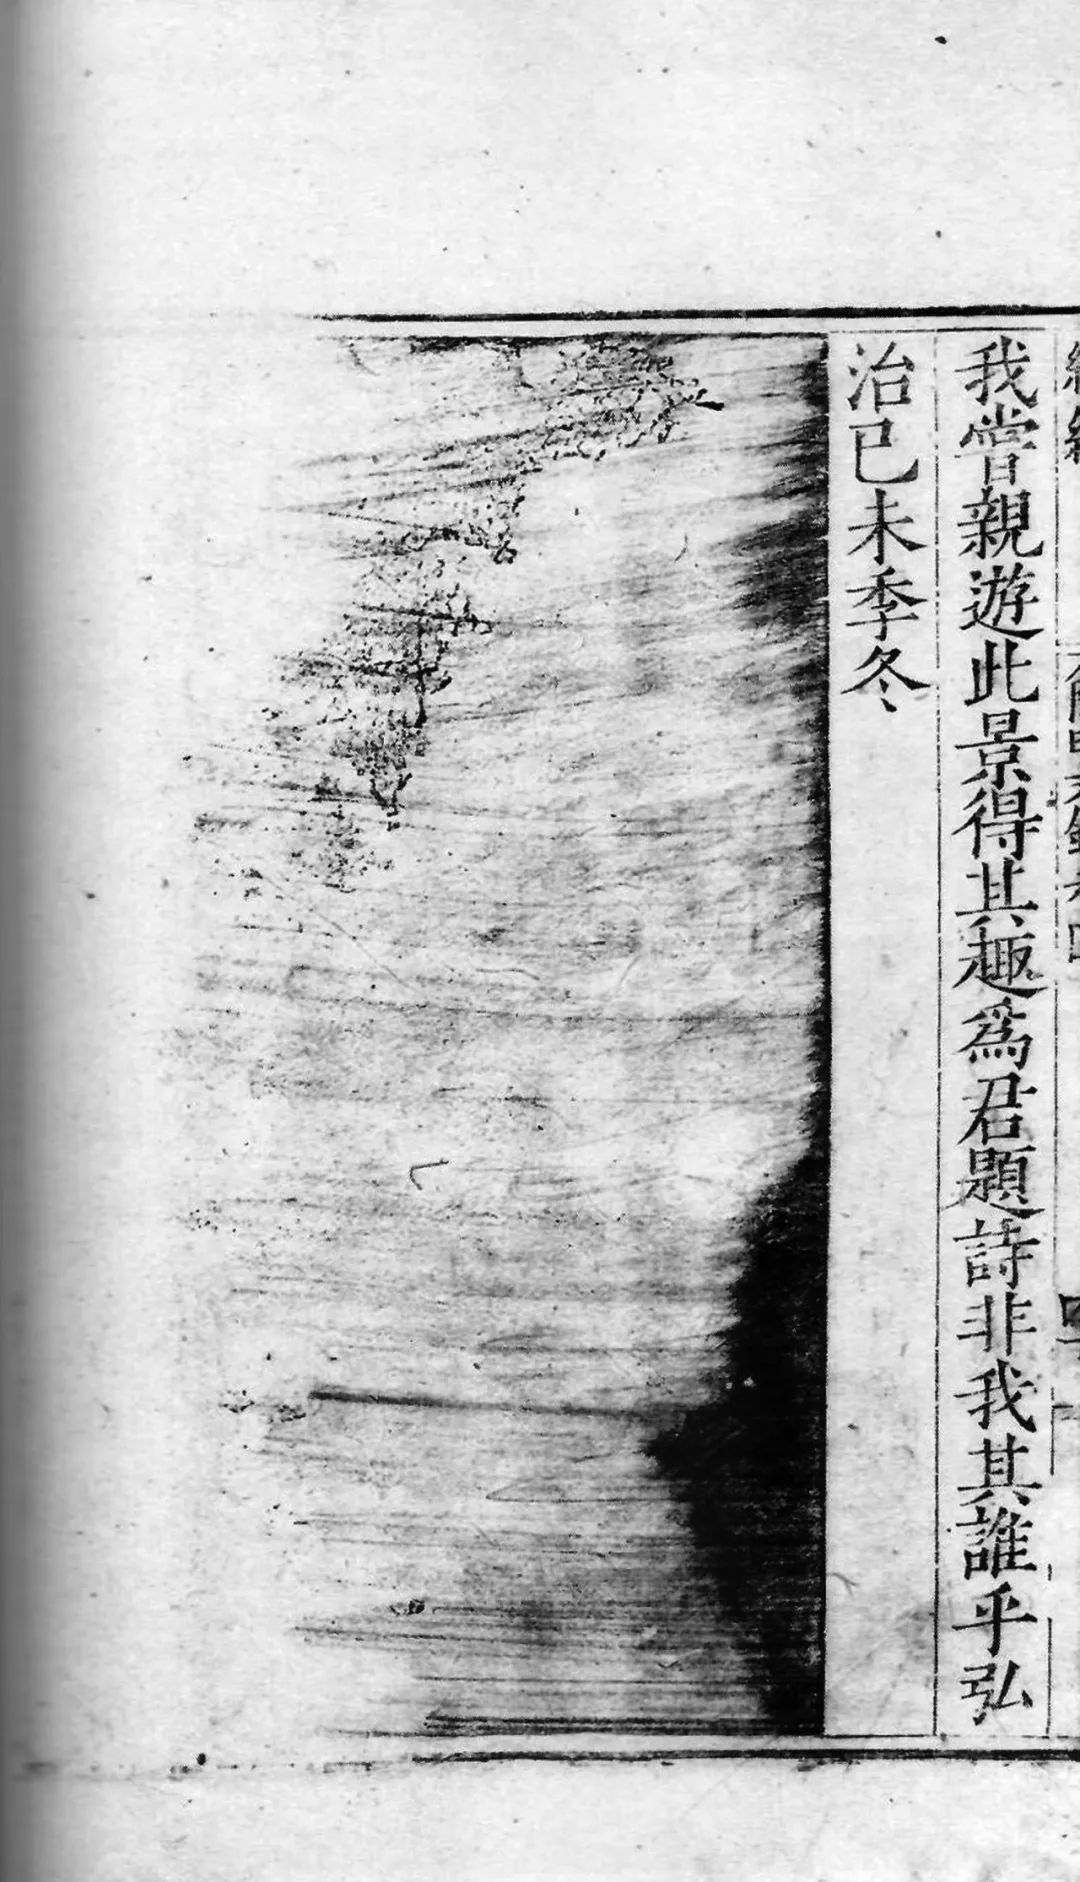 我嘗親遊此景得其趣為君題詩非我其誰乎弘
治己未季冬